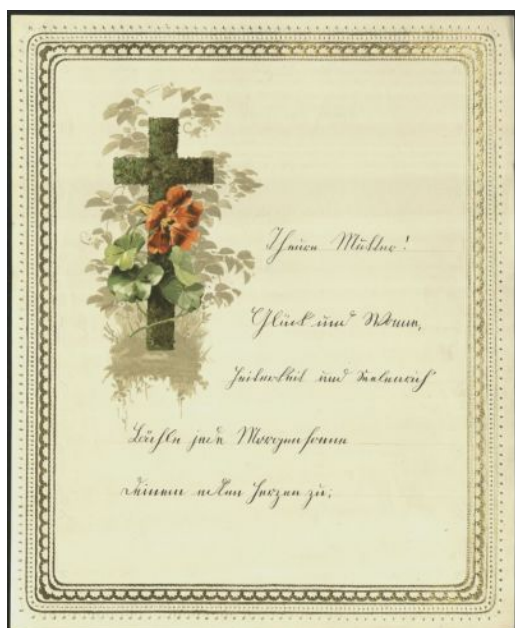 Theure Mutter!
Glück und Wonne,
Heiterkeit und Seelenruh
Lächle jede Morgensonne
Deinem edlen Herzen zu;